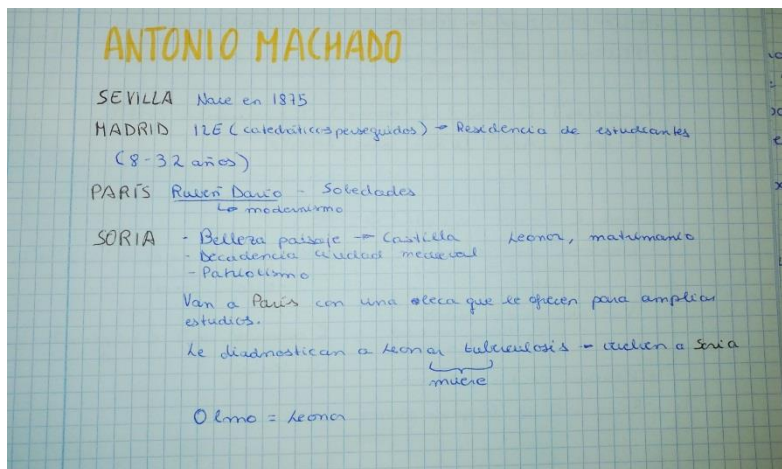 ANTONIO MACHADO
SEVILLA Nace en 1875
MADRID ILE (catedráticos perseguidos) → Residencia de estudiantes
(8-32 años)
PARÍS Rubén Darío - Soledades
↳ modernismo
SORIA - Belleza paisaje → Castilla Leonor, matrimonio
- Decadencia ciudad medieval
- Patriotismo
Van a París con una beca que le ofrecen para ampliar
estudios.
Le diagnostican a Leonor tuberculosis → vuelven a Soria
muere
Olmo = Leonor